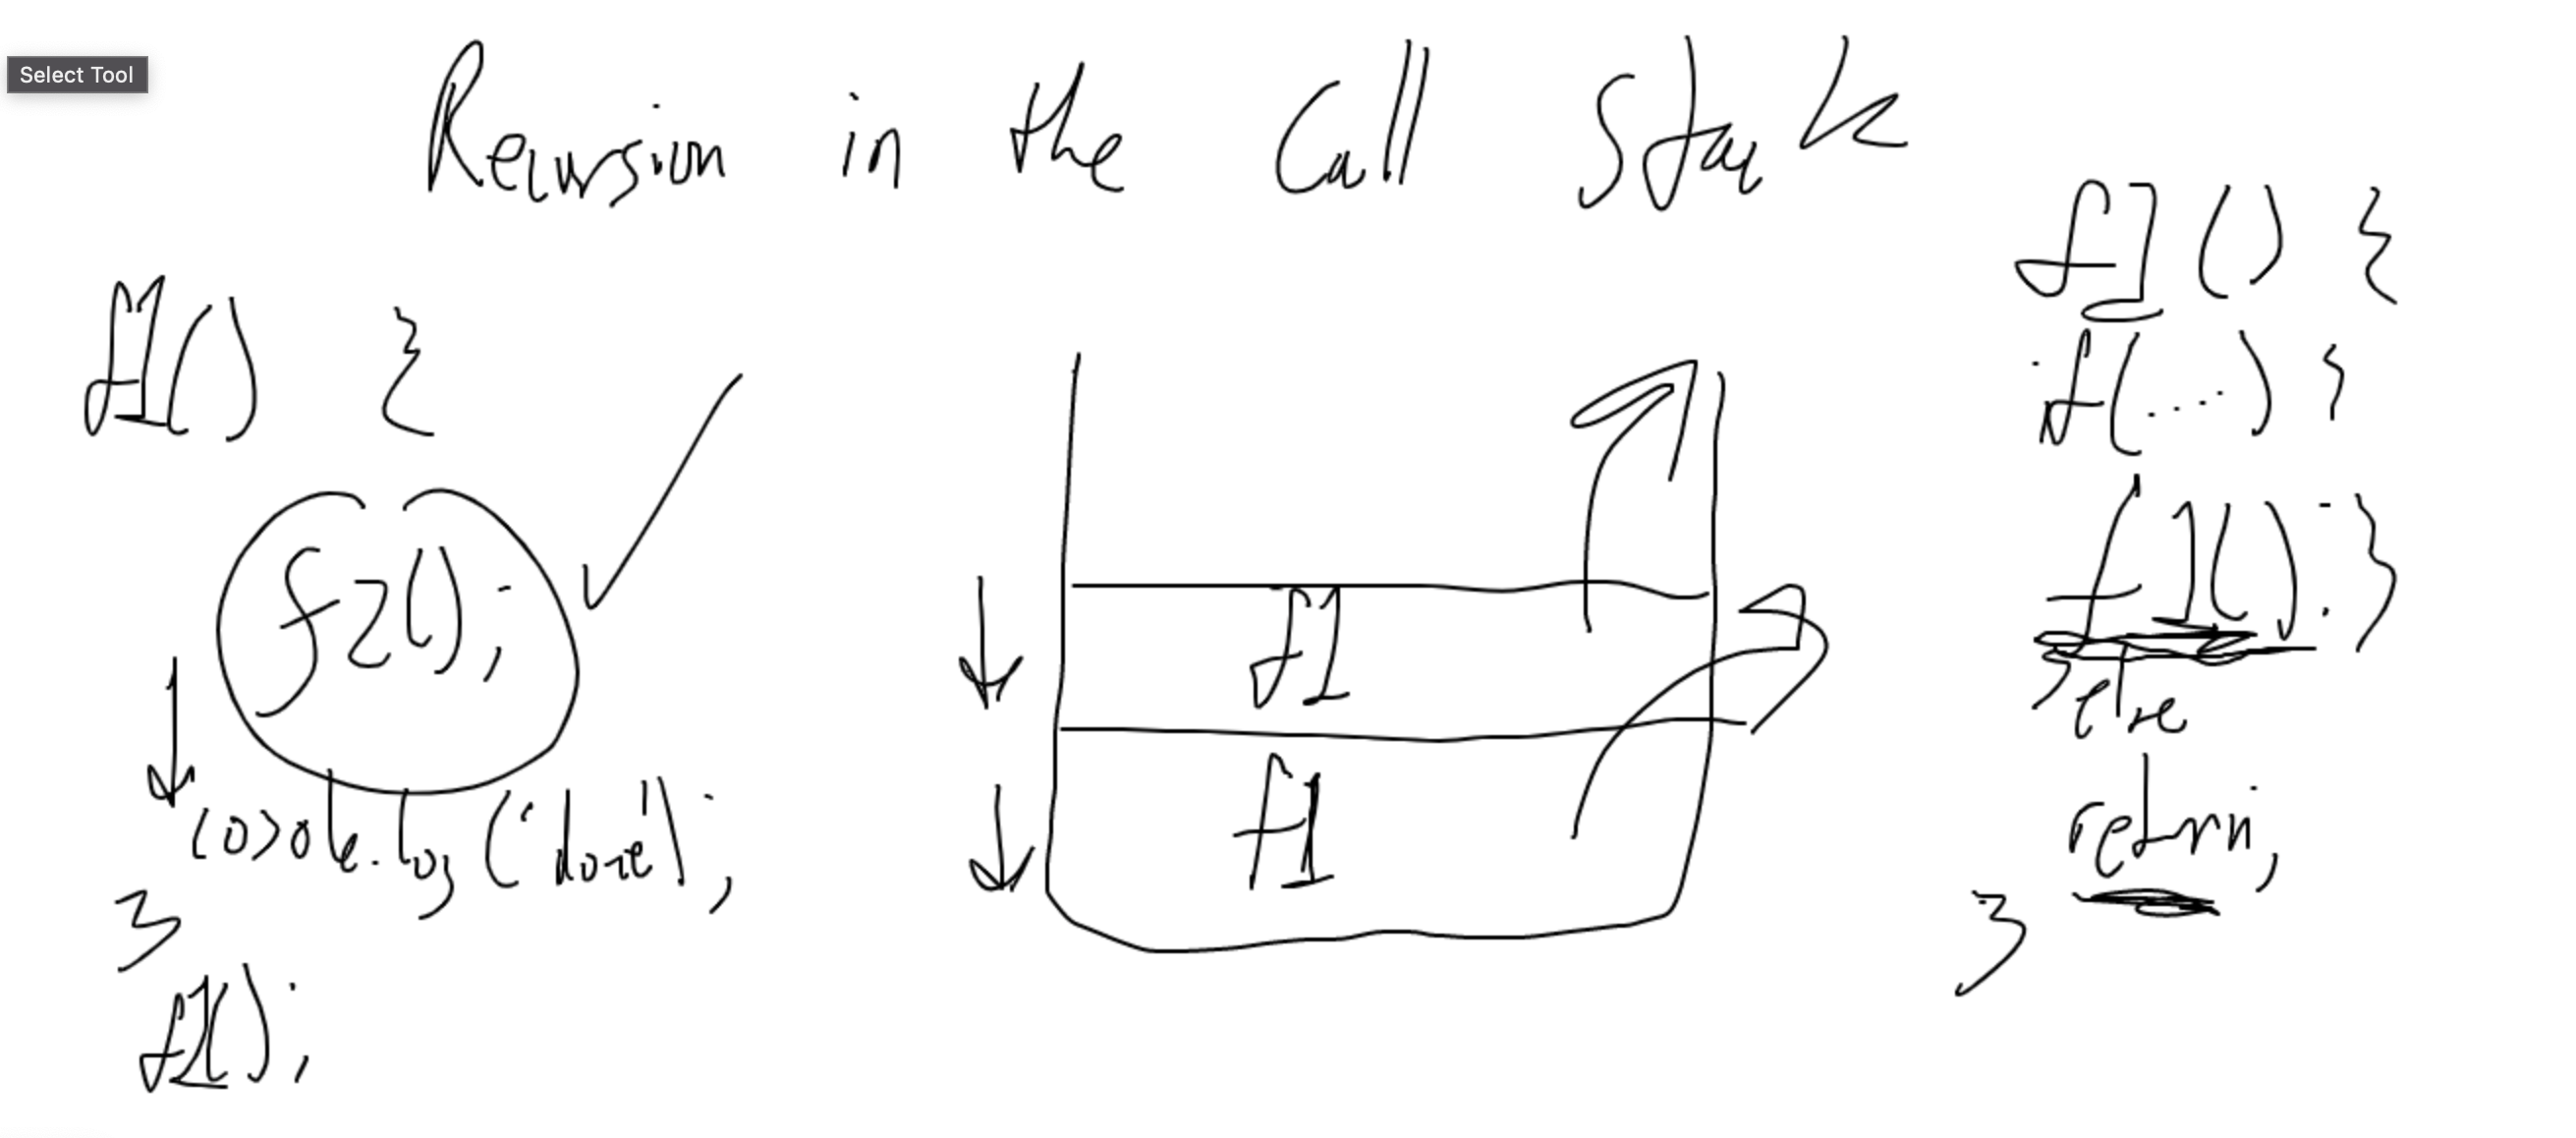 Select Tool
Recursion in the Call Stack
f1() {
f2();
console.log('done');
}
f1();
f1
f1
f1() {
if(....) {
f1(); }
} else
return;
}